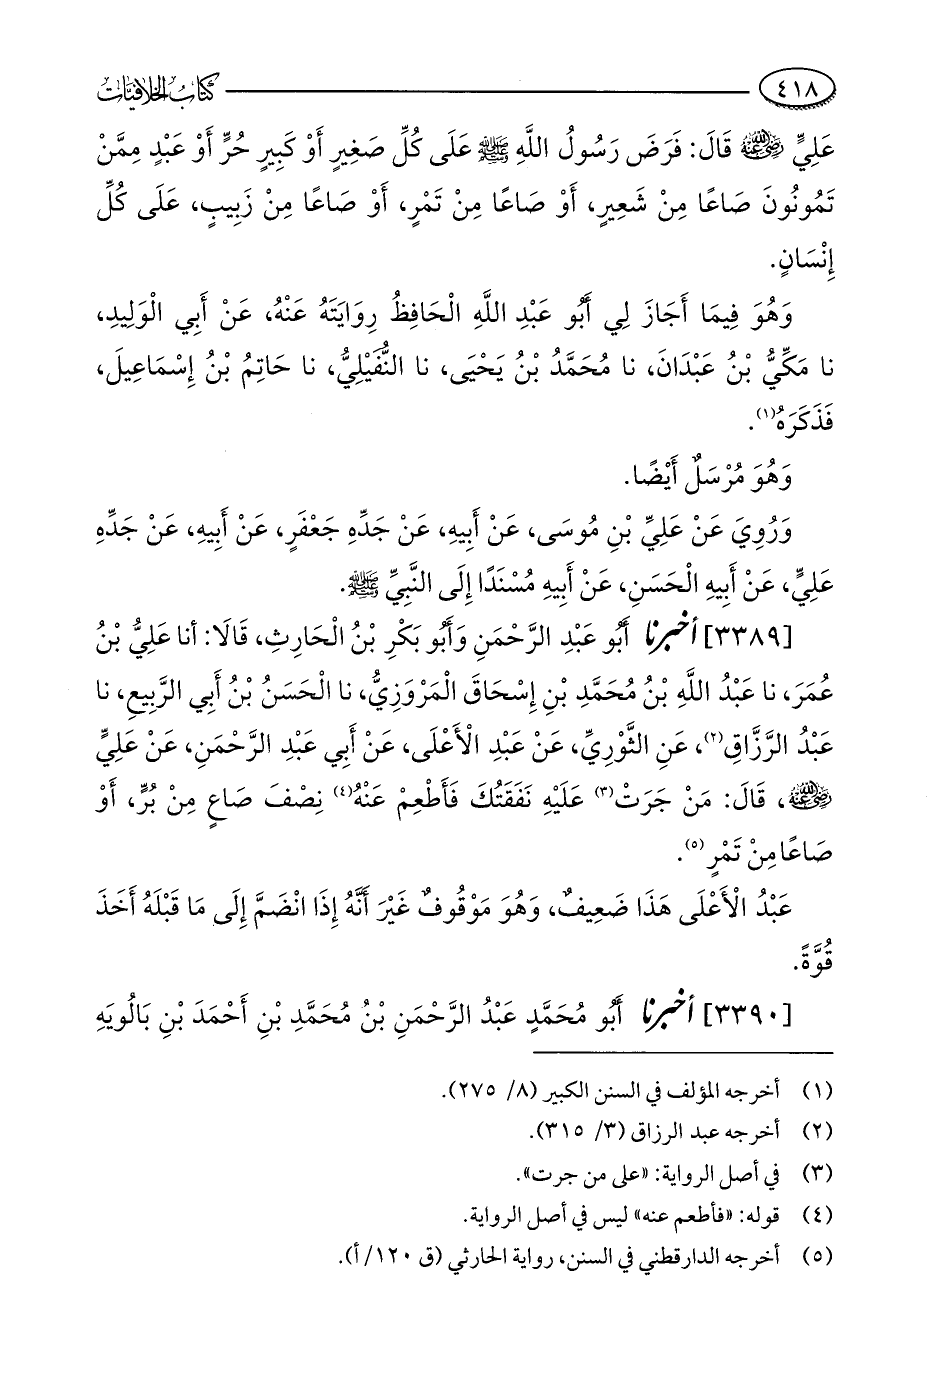 ٤١٨ كتاب الخلافيات
عَلِيٍّ رضي الله عنه قَالَ: فَرَضَ رَسُولُ اللَّهِ ﷺ عَلَى كُلِّ صَغِيرٍ أَوْ كَبِيرٍ حُرٍّ أَوْ عَبْدٍ مِمَّنْ
تَمُونُونَ صَاعًا مِنْ شَعِيرٍ، أَوْ صَاعًا مِنْ تَمْرٍ، أَوْ صَاعًا مِنْ زَبِيبٍ، عَلَى كُلِّ
إِنْسَانٍ.
وَهُوَ فِيمَا أَجَازَ لِي أَبُو عَبْدِ اللَّهِ الْحَافِظُ رِوَايَتَهُ عَنْهُ، عَنْ أَبِي الْوَلِيدِ،
نا مَكِّيُّ بْنُ عَبْدَانَ، نا مُحَمَّدُ بْنُ يَحْيَى، نا النُّفَيْلِيُّ، نا حَاتِمُ بْنُ إِسْمَاعِيلَ،
فَذَكَرَهُ(١).
وَهُوَ مُرْسَلٌ أَيْضًا.
وَرُوِيَ عَنْ عَلِيِّ بْنِ مُوسَى، عَنْ أَبِيهِ، عَنْ جَدِّهِ جَعْفَرٍ، عَنْ أَبِيهِ، عَنْ جَدِّهِ
عَلِيٍّ، عَنْ أَبِيهِ الْحَسَنِ، عَنْ أَبِيهِ مُسْنَدًا إِلَى النَّبِيِّ ﷺ.
[٣٣٨٩] أخبرنا أَبُو عَبْدِ الرَّحْمَنِ وَأَبُو بَكْرِ بْنُ الْحَارِثِ، قَالَا: أنا عَلِيُّ بْنُ
عُمَرَ، نا عَبْدُ اللَّهِ بْنُ مُحَمَّدِ بْنِ إِسْحَاقَ الْمَرْوَزِيُّ، نا الْحَسَنُ بْنُ أَبِي الرَّبِيعِ، نا
عَبْدُ الرَّزَّاقِ(٢)، عَنِ الثَّوْرِيِّ، عَنْ عَبْدِ الْأَعْلَى، عَنْ أَبِي عَبْدِ الرَّحْمَنِ، عَنْ عَلِيٍّ
رضي الله عنه، قَالَ: مَنْ جَرَتْ(٣) عَلَيْهِ نَفَقَتُكَ فَأَطْعِمْ عَنْهُ(٤) نِصْفَ صَاعٍ مِنْ بُرٍّ، أَوْ
صَاعًا مِنْ تَمْرٍ(٥).
عَبْدُ الْأَعْلَى هَذَا ضَعِيفٌ، وَهُوَ مَوْقُوفٌ غَيْرَ أَنَّهُ إِذَا انْضَمَّ إِلَى مَا قَبْلَهُ أَخَذَ
قُوَّةً.
[٣٣٩٠] أخبرنا أَبُو مُحَمَّدٍ عَبْدُ الرَّحْمَنِ بْنُ مُحَمَّدِ بْنِ أَحْمَدَ بْنِ بَالُويَهِ
(١) أخرجه المؤلف في السنن الكبير (٨/ ٢٧٥).
(٢) أخرجه عبد الرزاق (٣/ ٣١٥).
(٣) في أصل الرواية: «على من جرت».
(٤) قوله: «فأطعم عنه» ليس في أصل الرواية.
(٥) أخرجه الدارقطني في السنن، رواية الحارثي (ق ١٢٠/أ).